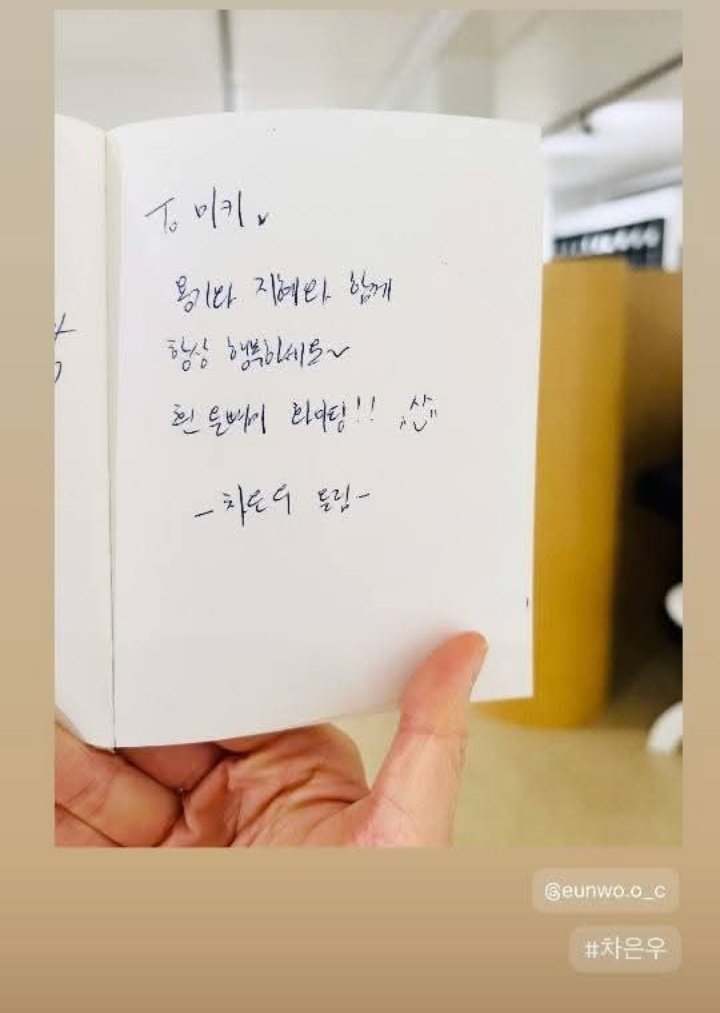 To 미키
용기와 지혜와 함께
항상 행복하세요~
흰 올빼미 화이팅!!
-차은우 드림-
@eunwo.o_c
#차은우